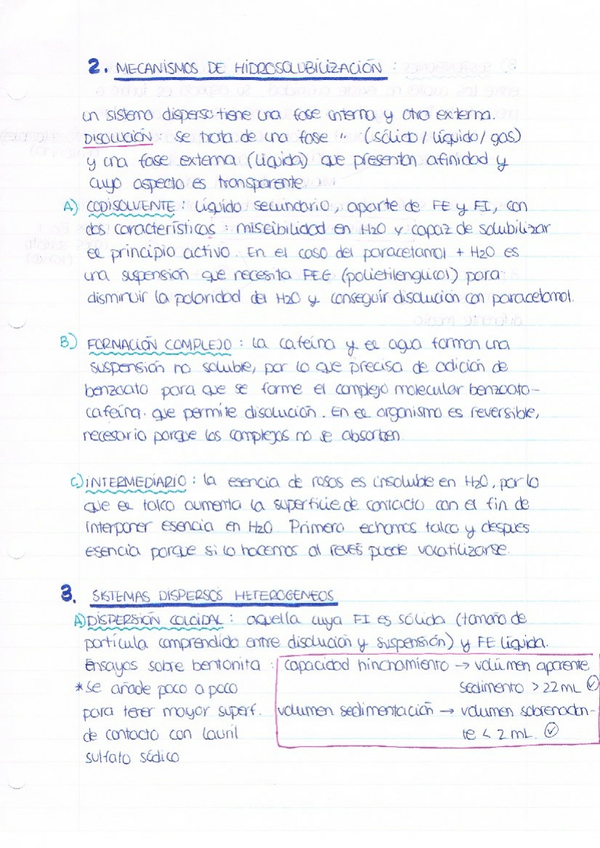 2. MECANISMOS DE HIDROSOLUBILIZACIÓN :
un sistema disperso tiene una fase interna y otra externa.
DISOLUCIÓN : se trata de una fase " (sólido / líquido / gas)
y una fase externa (líquida) que presentan afinidad y
cuyo aspecto es transparente.
A) CODISOLVENTE : líquido secundario, aparte de FE y FI, con
dos características : miscibilidad en H2O y capaz de solubilizar
el principio activo. En el caso del paracetamol + H2O es
una suspensión que necesita PEG (polietilenglicol) para
disminuir la polaridad del H2O y conseguir disolución con paracetamol.
B) FORMACIÓN COMPLEJO : la cafeína y el agua forman una
suspensión no soluble, por lo que precisa de adición de
benzoato para que se forme el complejo molecular benzoato-
cafeína. que permite disolución. En el organismo es reversible,
necesario porque los complejos no se absorben
C) INTERMEDIARIO : la esencia de rosas es insoluble en H2O, por lo
que el talco aumenta la superficie de contacto con el fin de
interponer esencia en H2O. Primero echamos talco y después
esencia porque si lo hacemos al revés puede volatilizarse
3. SISTEMAS DISPERSOS HETEROGENEOS
A) DISPERSIÓN COLOIDAL : aquella cuya FI es sólida (tamaño de
partícula comprendido entre disolución y suspensión) y FE líquida.
Ensayos sobre bentonita : capacidad hinchamiento → volumen aparente
*Se añade poco a poco sedimento > 22 mL ✓
para tener mayor superf. volumen sedimentación → volumen sobrenadan-
de contacto con lauril te < 2 mL. ✓
sulfato sódico